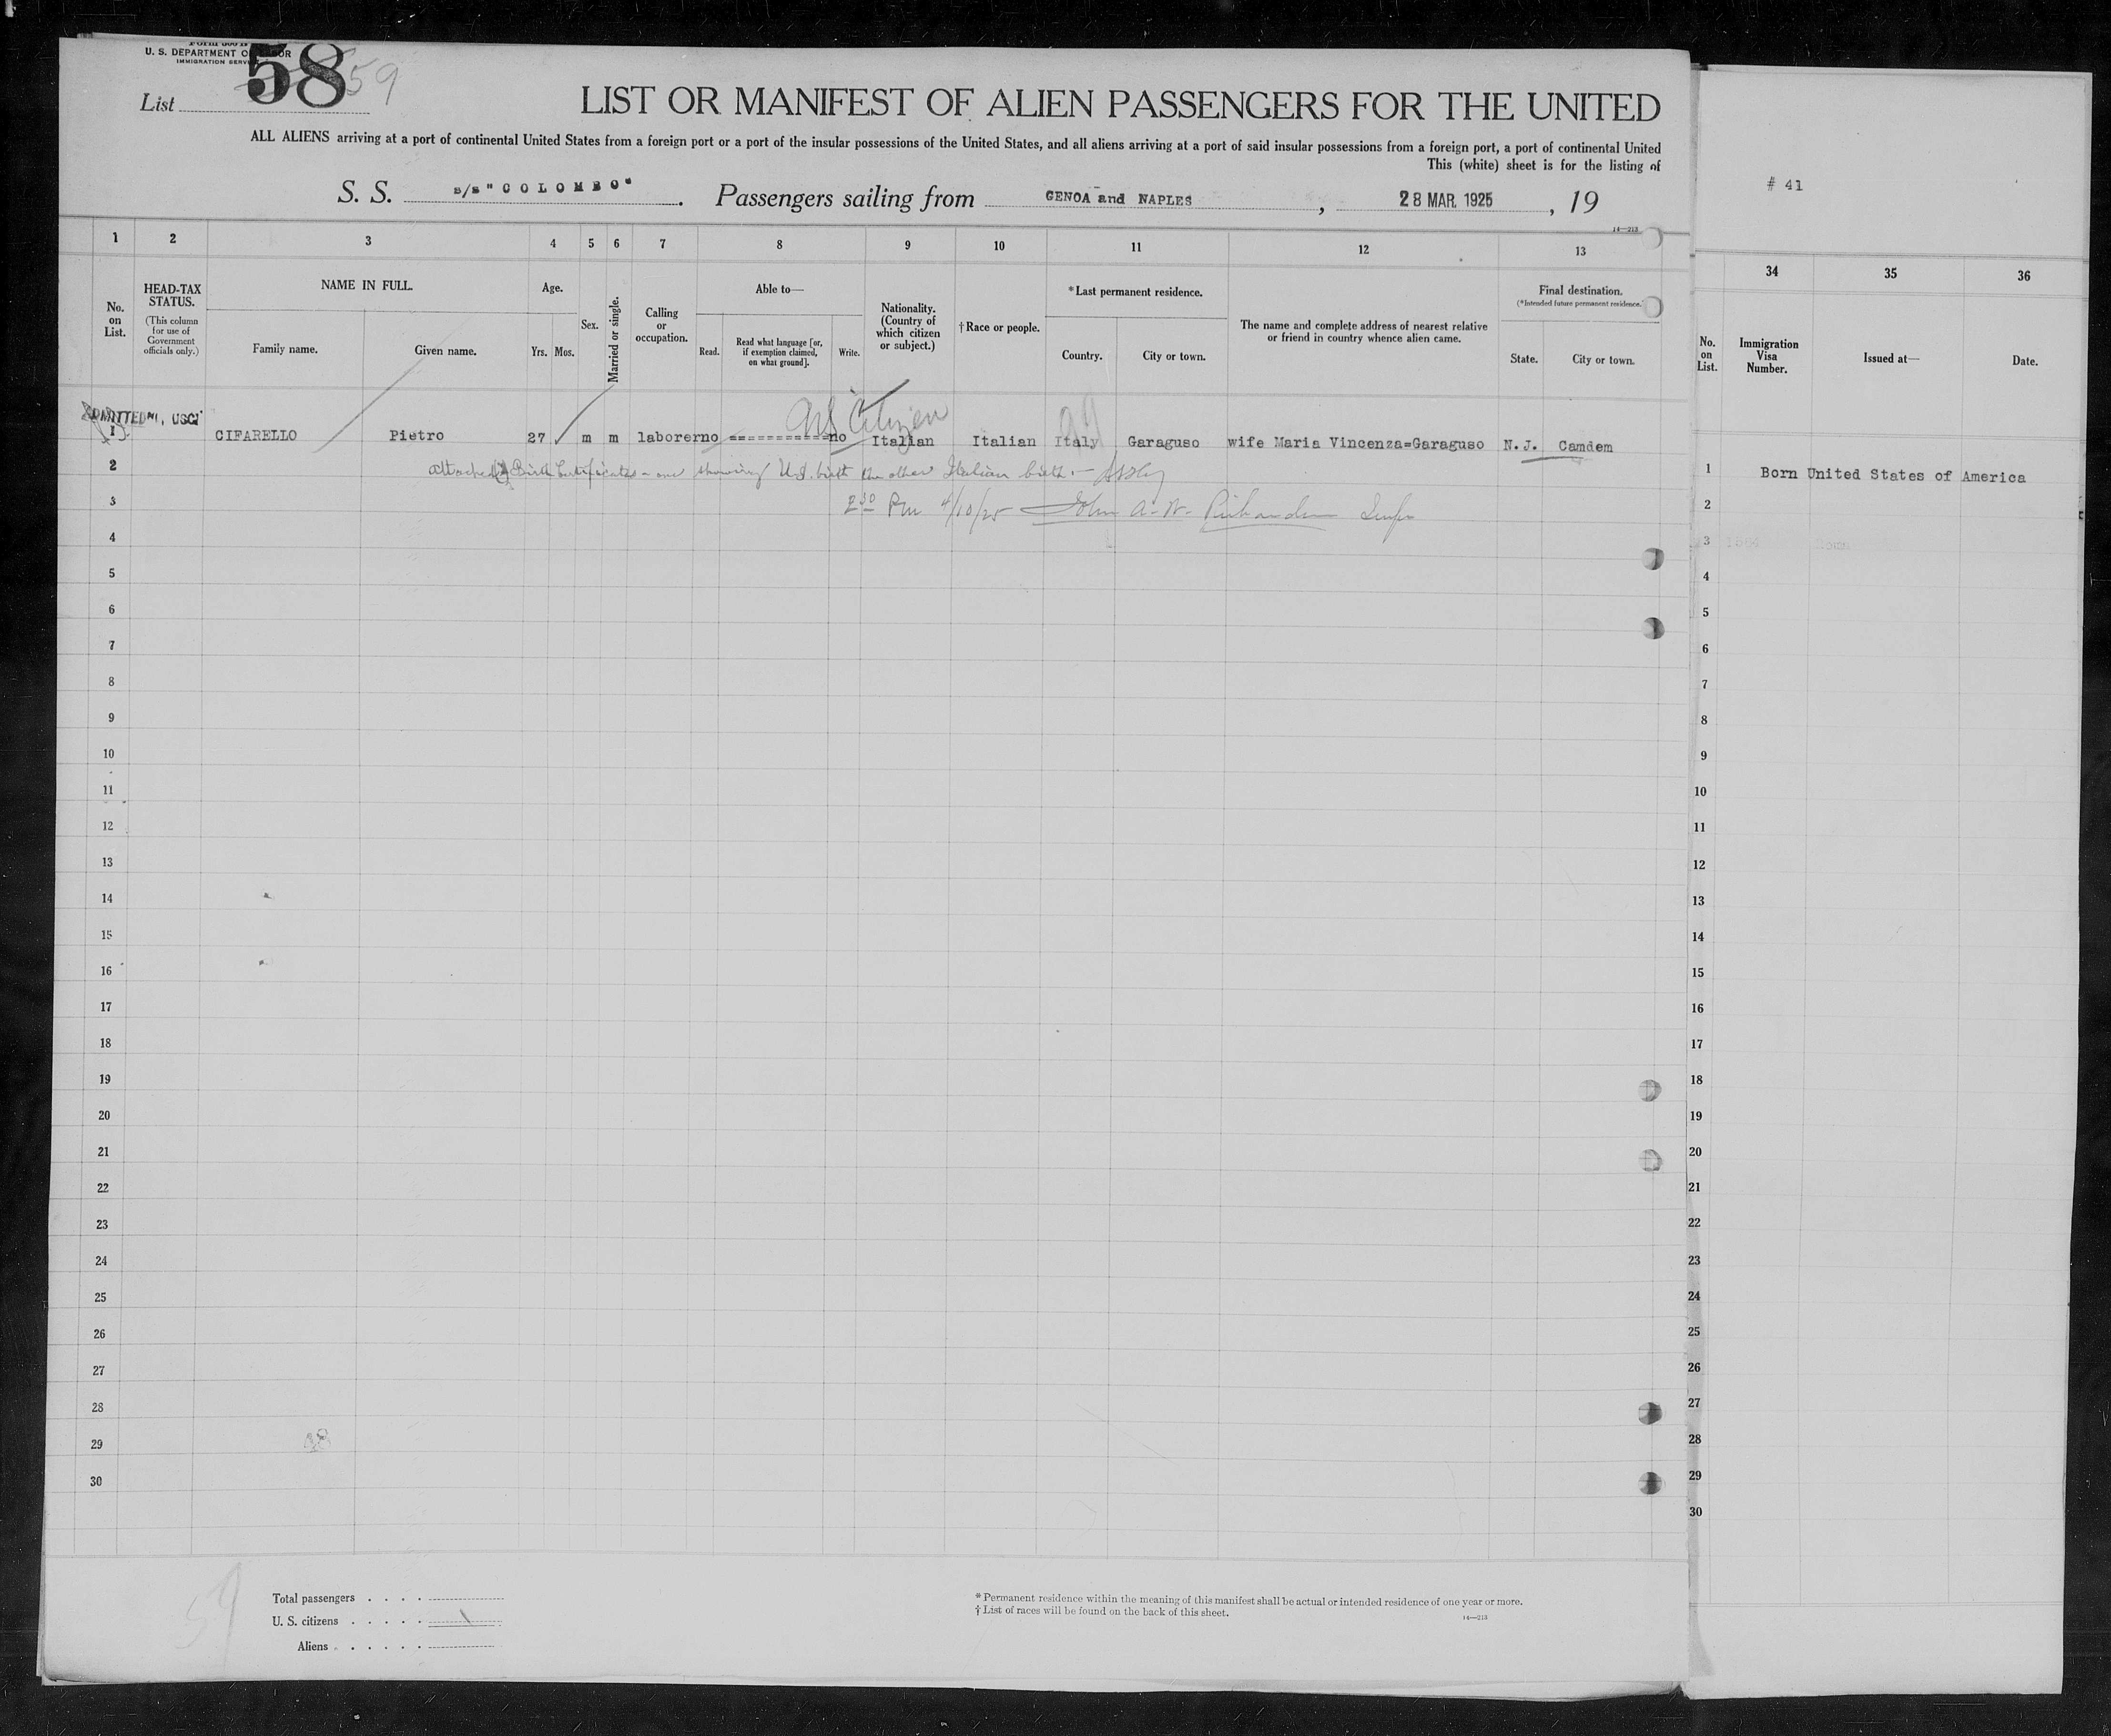 U. S. DEPARTMENT OF LABOR
IMMIGRATION SERVICE
List 58 59
LIST OR MANIFEST OF ALIEN PASSENGERS FOR THE UNITED
ALL ALIENS arriving at a port of continental United States from a foreign port or a port of the insular possessions of the United States, and all aliens arriving at a port of said insular possessions from a foreign port, a port of continental United
This (white) sheet is for the listing of
S. S. s/s "COLOMBO". Passengers sailing from GENOA and NAPLES, 28 MAR. 1925, 19
14—213
1 2 3 4 5 6 7 8 9 10 11 12 13
No. on List.
HEAD-TAX STATUS.
(This column for use of Government officials only.)
NAME IN FULL.
Family name. Given name.
Age.
Yrs. Mos.
Sex.
Married or single.
Calling or occupation.
Able to—
Read. Read what language [or, if exemption claimed, on what ground]. Write.
Nationality. (Country of which citizen or subject.)
†Race or people.
*Last permanent residence.
Country. City or town.
The name and complete address of nearest relative or friend in country whence alien came.
Final destination.
(*Intended future permanent residence.)
State. City or town.
ADMITTED
US Citizen
1 CIFARELLO Pietro 27 m m laborer no ============ no Italian Italian Italy Garaguso wife Maria Vincenza=Garaguso N.J. Camdem
2 Attached Birth Certificates - one showing U.S. birth the other Italian birth. -
3 2 30 Pm 4/10/25 John A. W. Richardson Insp
4
5
6
7
8
9
10
11
12
13
14
15
16
17
18
19
20
21
22
23
24
25
26
27
28
29
48
30
59
Total passengers . . . .
U. S. citizens . . . . . 1
Aliens . . . . . .
*Permanent residence within the meaning of this manifest shall be actual or intended residence of one year or more.
†List of races will be found on the back of this sheet.
14—213
# 41
34 35 36
No. on List.
Immigration Visa Number.
Issued at—
Date.
1 Born United States of America
2
3
4
5
6
7
8
9
10
11
12
13
14
15
16
17
18
19
20
21
22
23
24
25
26
27
28
29
30